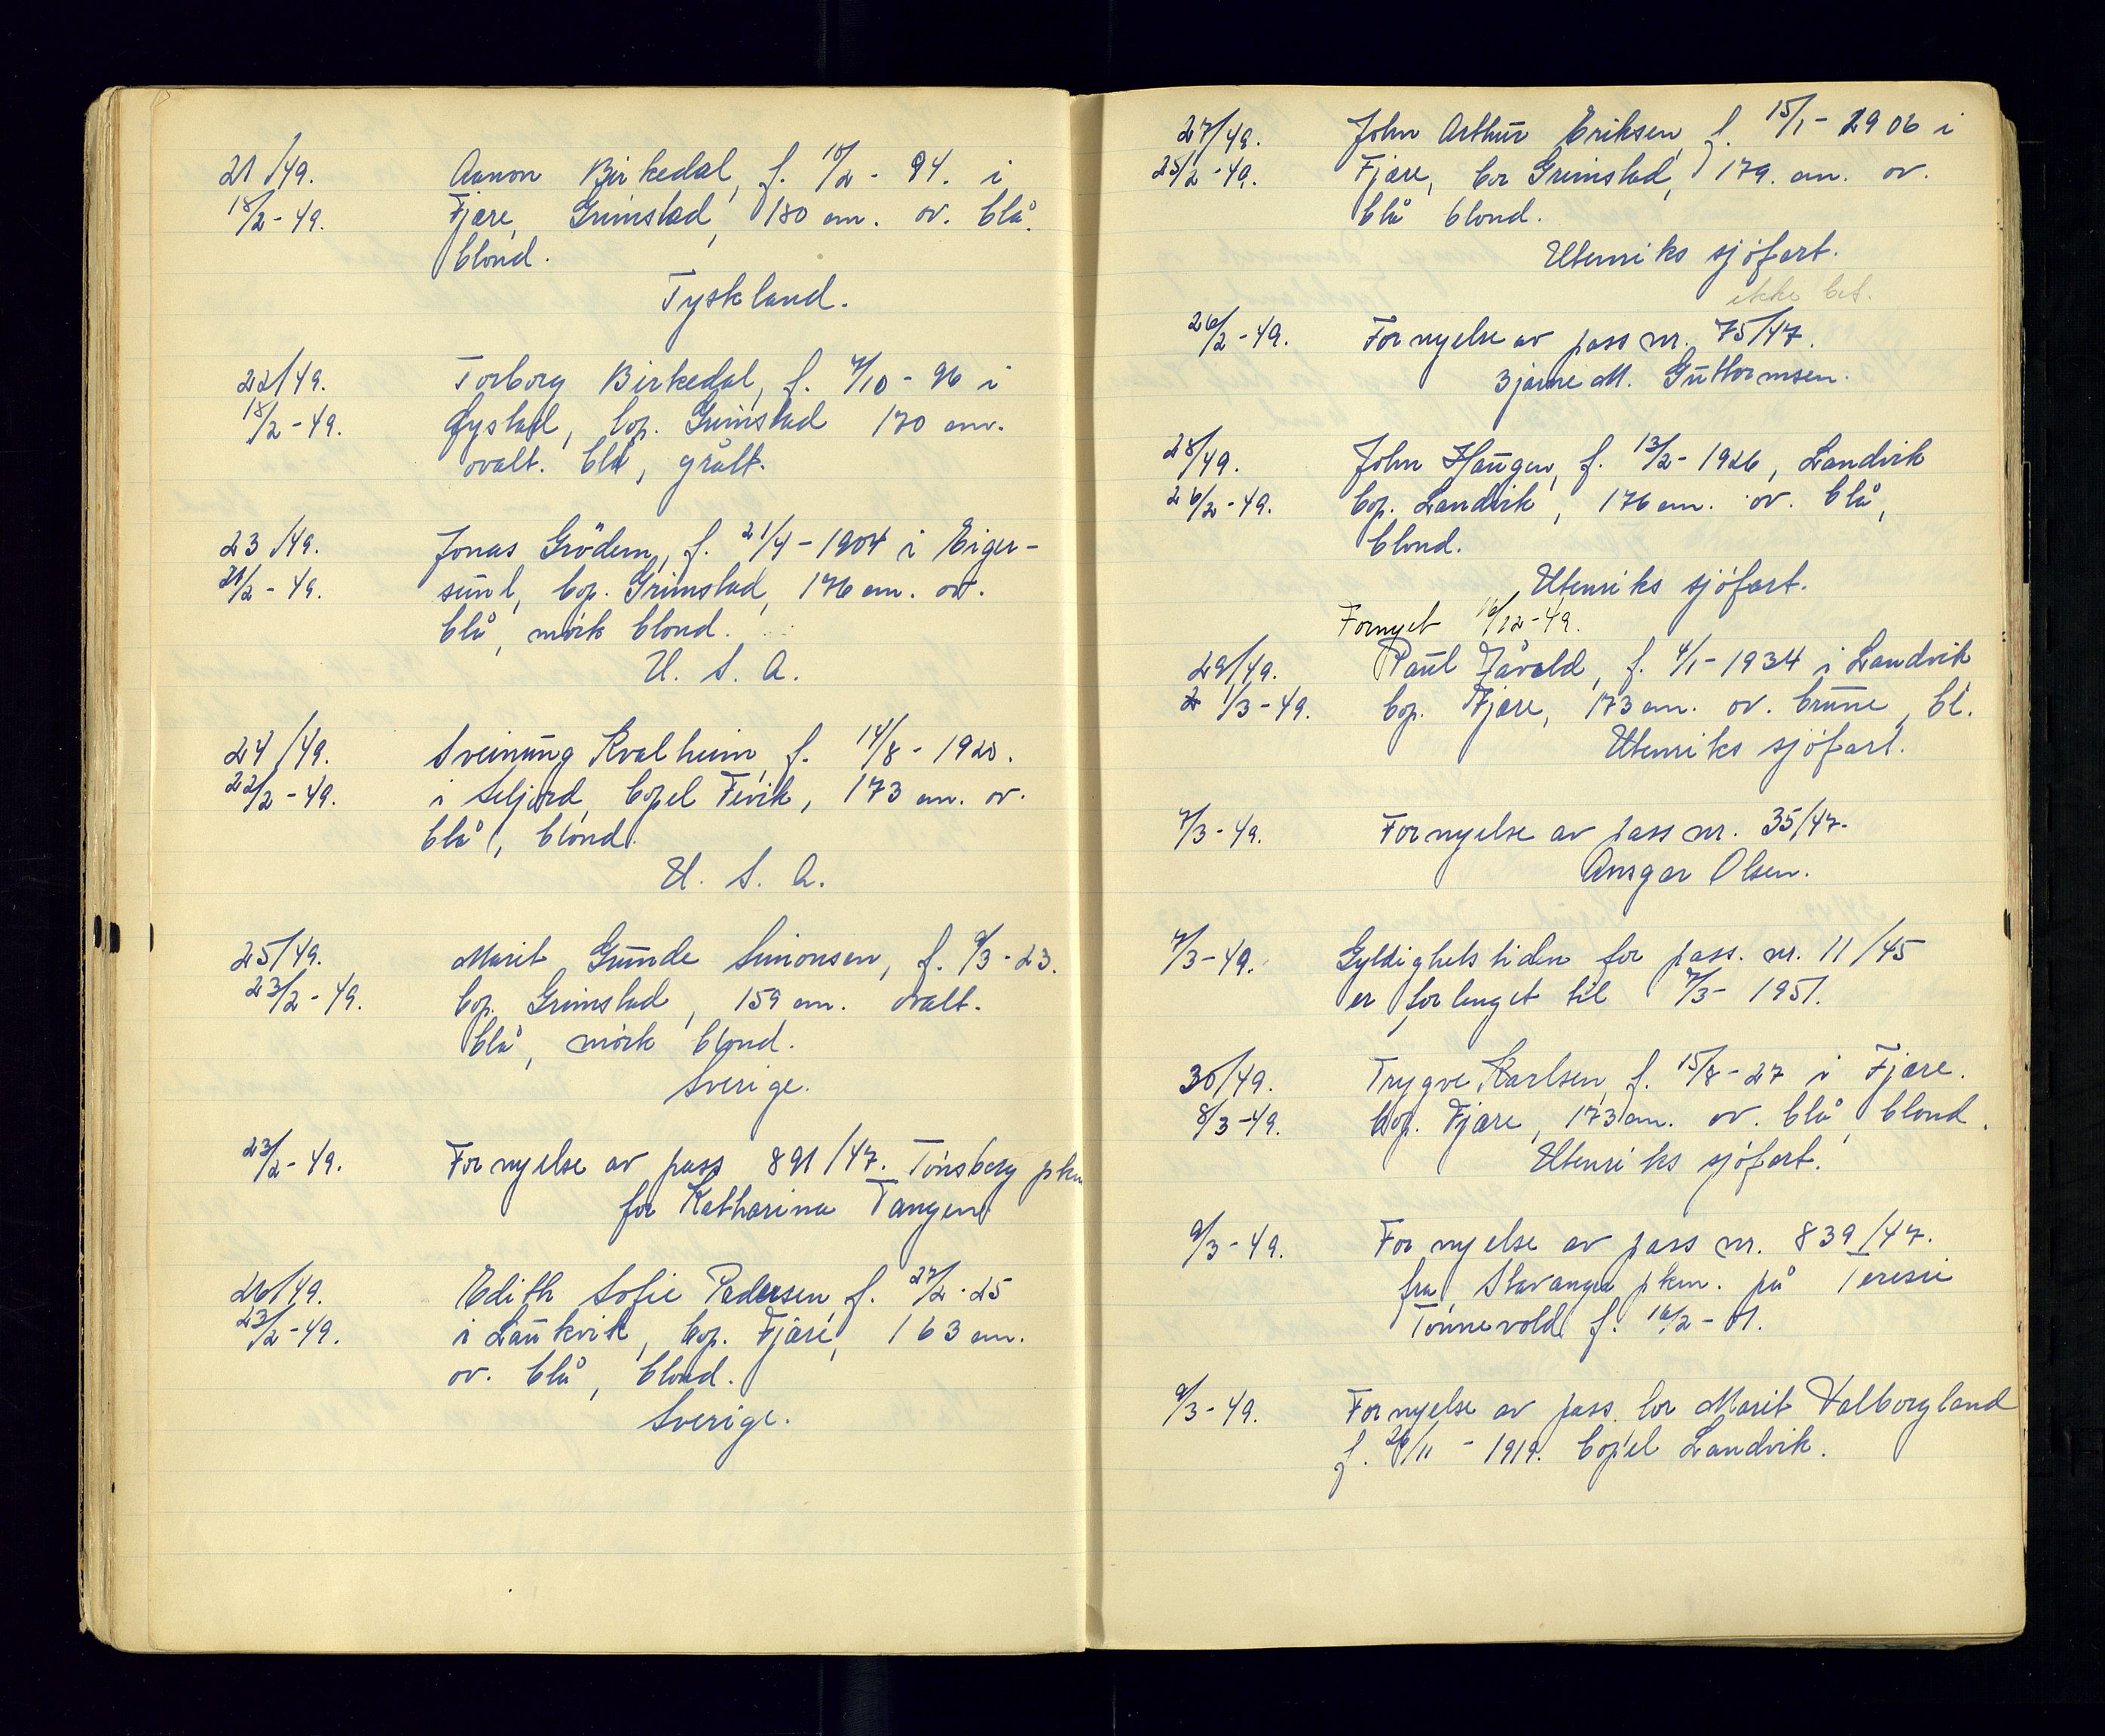 21/49. Aanon Birkedal, f. 10/2 - 94. i
18/2 - 49. Fjære, Grimstad, 180 cm. ov. blå,
blond.
Tyskland.
22/49. Torborg Birkedal, f. 7/10 - 96 i
18/2 - 49. Øystad, bop. Grimstad 170 cm.
ovalt. blå, grått.
23/49. Jonas Grödem, f. 21/4 - 1904 i Eiger-
21/2 - 49. sund, bop. Grimstad, 176 cm. ov.
blå, mörk blond.
U. S. A.
24/49. Sveinung Kvalheim, f. 14/8 - 1920.
22/2 - 49. i Seljord, bopel Fevik, 173 cm. ov.
blå, blond.
U. S. A.
25/49. Marit Gunde Simonsen, f. 9/3 - 23.
23/2 - 49. bop. Grimstad, 159 cm. ovalt.
blå, mörk blond.
Sverige.
23/2 - 49. Fornyelse av pass 891/47. Tönsberg pkm
for Katharina Tangen
26/49. Edith Sofie Pedersen, f. 27/2 - 25
23/2 - 49. i Laukvik, bop. Fjære, 163 cm.
ov. blå, blond.
Sverige.
27/49. John Arthur Eriksen, f. 15/1 - 1906 i
25/2 - 49. Fjære, bor Grimstad, 179. cm. ov.
blå blond.
Utenriks sjöfart.
ikke bet.
26/2 - 49. Fornyelse av pass nr. 75/47.
Bjarne M. Guttormsen.
28/49. John Haugen, f. 13/2 - 1926, Landvik
26/2 - 49. bop. Landvik, 176 cm. ov. blå,
blond.
Utenriks sjöfart.
Fornyet 16/12 - 49.
29/49. Paul Jåvold, f. 4/1 - 1934 i Landvik
1/3 - 49. bop. Fjære, 173 cm. ov. brune, bl.
Utenriks sjöfart.
7/3 - 49. Fornyelse av pass nr. 35/47.
Ansgar Olsen.
7/3 - 49. Gyldighetstiden for pass. nr. 11/45
er forlenget til 7/3 - 1951.
30/49. Trygve Karlsen, f. 15/8 - 27 i Fjære.
8/3 - 49. bop. Fjære, 173 cm. ov. blå, blond.
Utenriks sjöfart.
9/3 - 49. Fornyelse av pass nr. 839/47.
fra Stavanger pkm. på
Tönnevold f. 16/2 - 01.
9/3 - 49. Fornyelse av pass for Marit Valborgland
f. 26/11 - 1919. bopel Landvik.